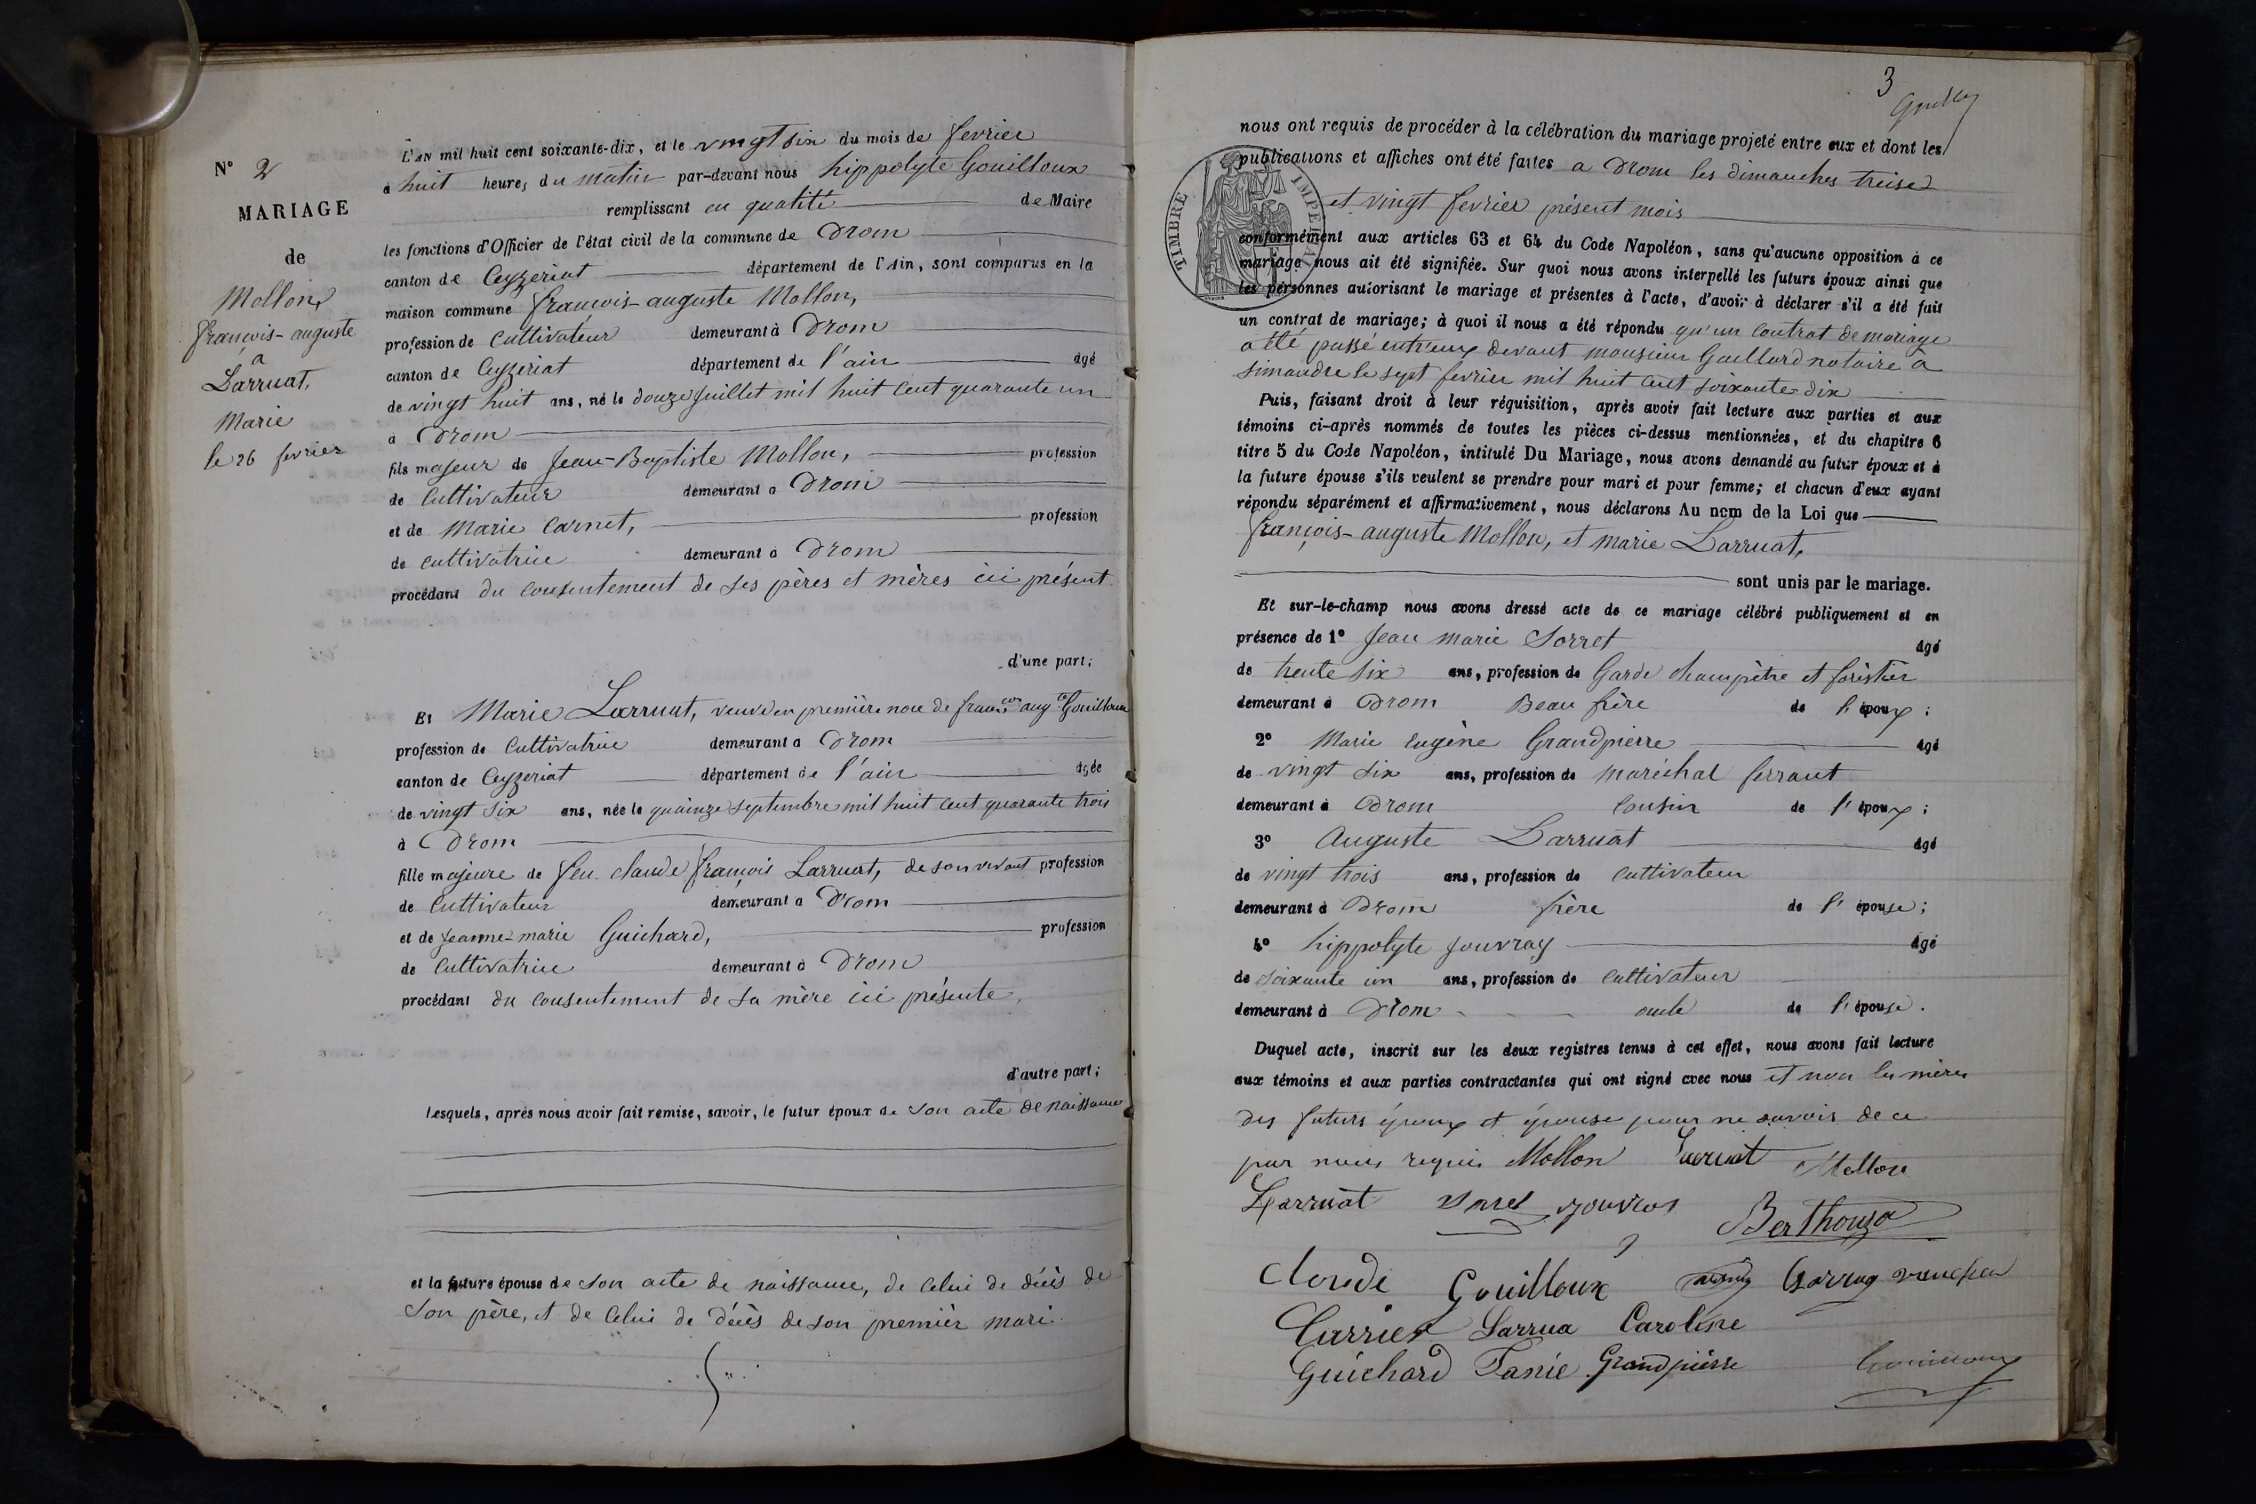 N° 2
MARIAGE
de
Mollon,
françois-auguste
a
Larruat,
Marie
le 26 fevrier
L'AN mil huit cent soixante-dix, et le vingt six du mois de fevrier
à huit heures du matin par-devant nous hippolyte Gouilloux
remplissant en qualité de Maire
les fonctions d'Officier de l'état civil de la commune de Drom
canton de Ceyzeriat département de l'Ain, sont comparus en la
maison commune françois-auguste Mollon,
profession de cultivateur demeurant à Drom
canton de Ceyzeriat département de l'ain âgé
de vingt huit ans, né le douze juillet mil huit cent quarante un
à Drom
fils majeur de Jean-Baptiste Mollon, profession
de Cultivateur demeurant à Drom
et de Marie Carnet, profession
de cultivatrice demeurant à Drom
procédant du consentement de ses pères et mères ici présent
d'une part;
Et Marie Larruat, veuve en première noce de francois aug te Gouilloux
profession de Cultivatrice demeurant à Drom
canton de Ceyzeriat département de l'ain âgée
de vingt six ans, née le quainze septembre mil huit cent quarante trois
à Drom
fille majeure de feu claude françois Larruat, de son vivant profession
de Cultivateur demeurant à Drom
et de Jeanne-marie Guichard, profession
de Cultivatrice demeurant à Drom
procédant du consentement de sa mère ici présente,
d'autre part;
Lesquels, après nous avoir fait remise, savoir, le futur époux de son acte de naissance
et la future épouse de son acte de naissance, de celui de décès de
son père, et de celui de décès de son premièr mari
3
TIMBRE IMPERIAL
nous ont requis de procéder à la célébration du mariage projeté entre eux et dont les
publications et affiches ont été faites a Drom les dimanches treise
et vingt fevrier présent mois
conformément aux articles 63 et 64 du Code Napoléon, sans qu'aucune opposition à ce
mariage nous ait été signifiée. Sur quoi nous avons interpellé les futurs époux ainsi que
les personnes autorisant le mariage et présentes à l'acte, d'avoir à déclarer s'il a été fait
un contrat de mariage; à quoi il nous a été répondu qu'un contrat de mariage
a été passé entr'eux devant monsieur Gaillard notaire à
simandre le sept fevrier mil huit cent soixante-dix
Puis, faisant droit à leur réquisition, après avoir fait lecture aux parties et aux
témoins ci-après nommés de toutes les pièces ci-dessus mentionnées, et du chapitre 6
titre 5 du Code Napoléon, intitulé Du Mariage, nous avons demandé au futur époux et à
la future épouse s'ils veulent se prendre pour mari et pour femme; et chacun d'eux ayant
répondu séparément et affirmativement, nous déclarons Au nom de la Loi que
françois-auguste Mollon, et marie Larruat,
sont unis par le mariage.
Et sur-le-champ nous avons dressé acte de ce mariage célébré publiquement et en
présence de 1° Jean marie Sorret âgé
de trente six ans, profession de Garde champêtre et forêstier
demeurant à Drom Beau frère de l'époux;
2° Marie Eugène Grandpierre âgé
de vingt six ans, profession de maréchal ferrant
demeurant à Drom Cousin de l'époux;
3° Auguste Larruat âgé
de vingt trois ans, profession de cultivateur
demeurant à Drom frère de l'épouse;
4° hippolyte Jouvray âgé
de soixante un ans, profession de cultivateur
demeurant à Drom oncle de l'épouse.
Duquel acte, inscrit sur les deux registres tenus à cet effet, nous avons fait lecture
aux témoins et aux parties contractantes qui ont signé avec nous et non les mères
des futurs époux et épouse pour ne savoir de ce
par nous requis Mollon Larruat Mollon
Larruat Sorret
Berthouza
Claude Gouilloux
Carrier Larrua Caroline
Guichard Fanie Grandpierre Gouilloux